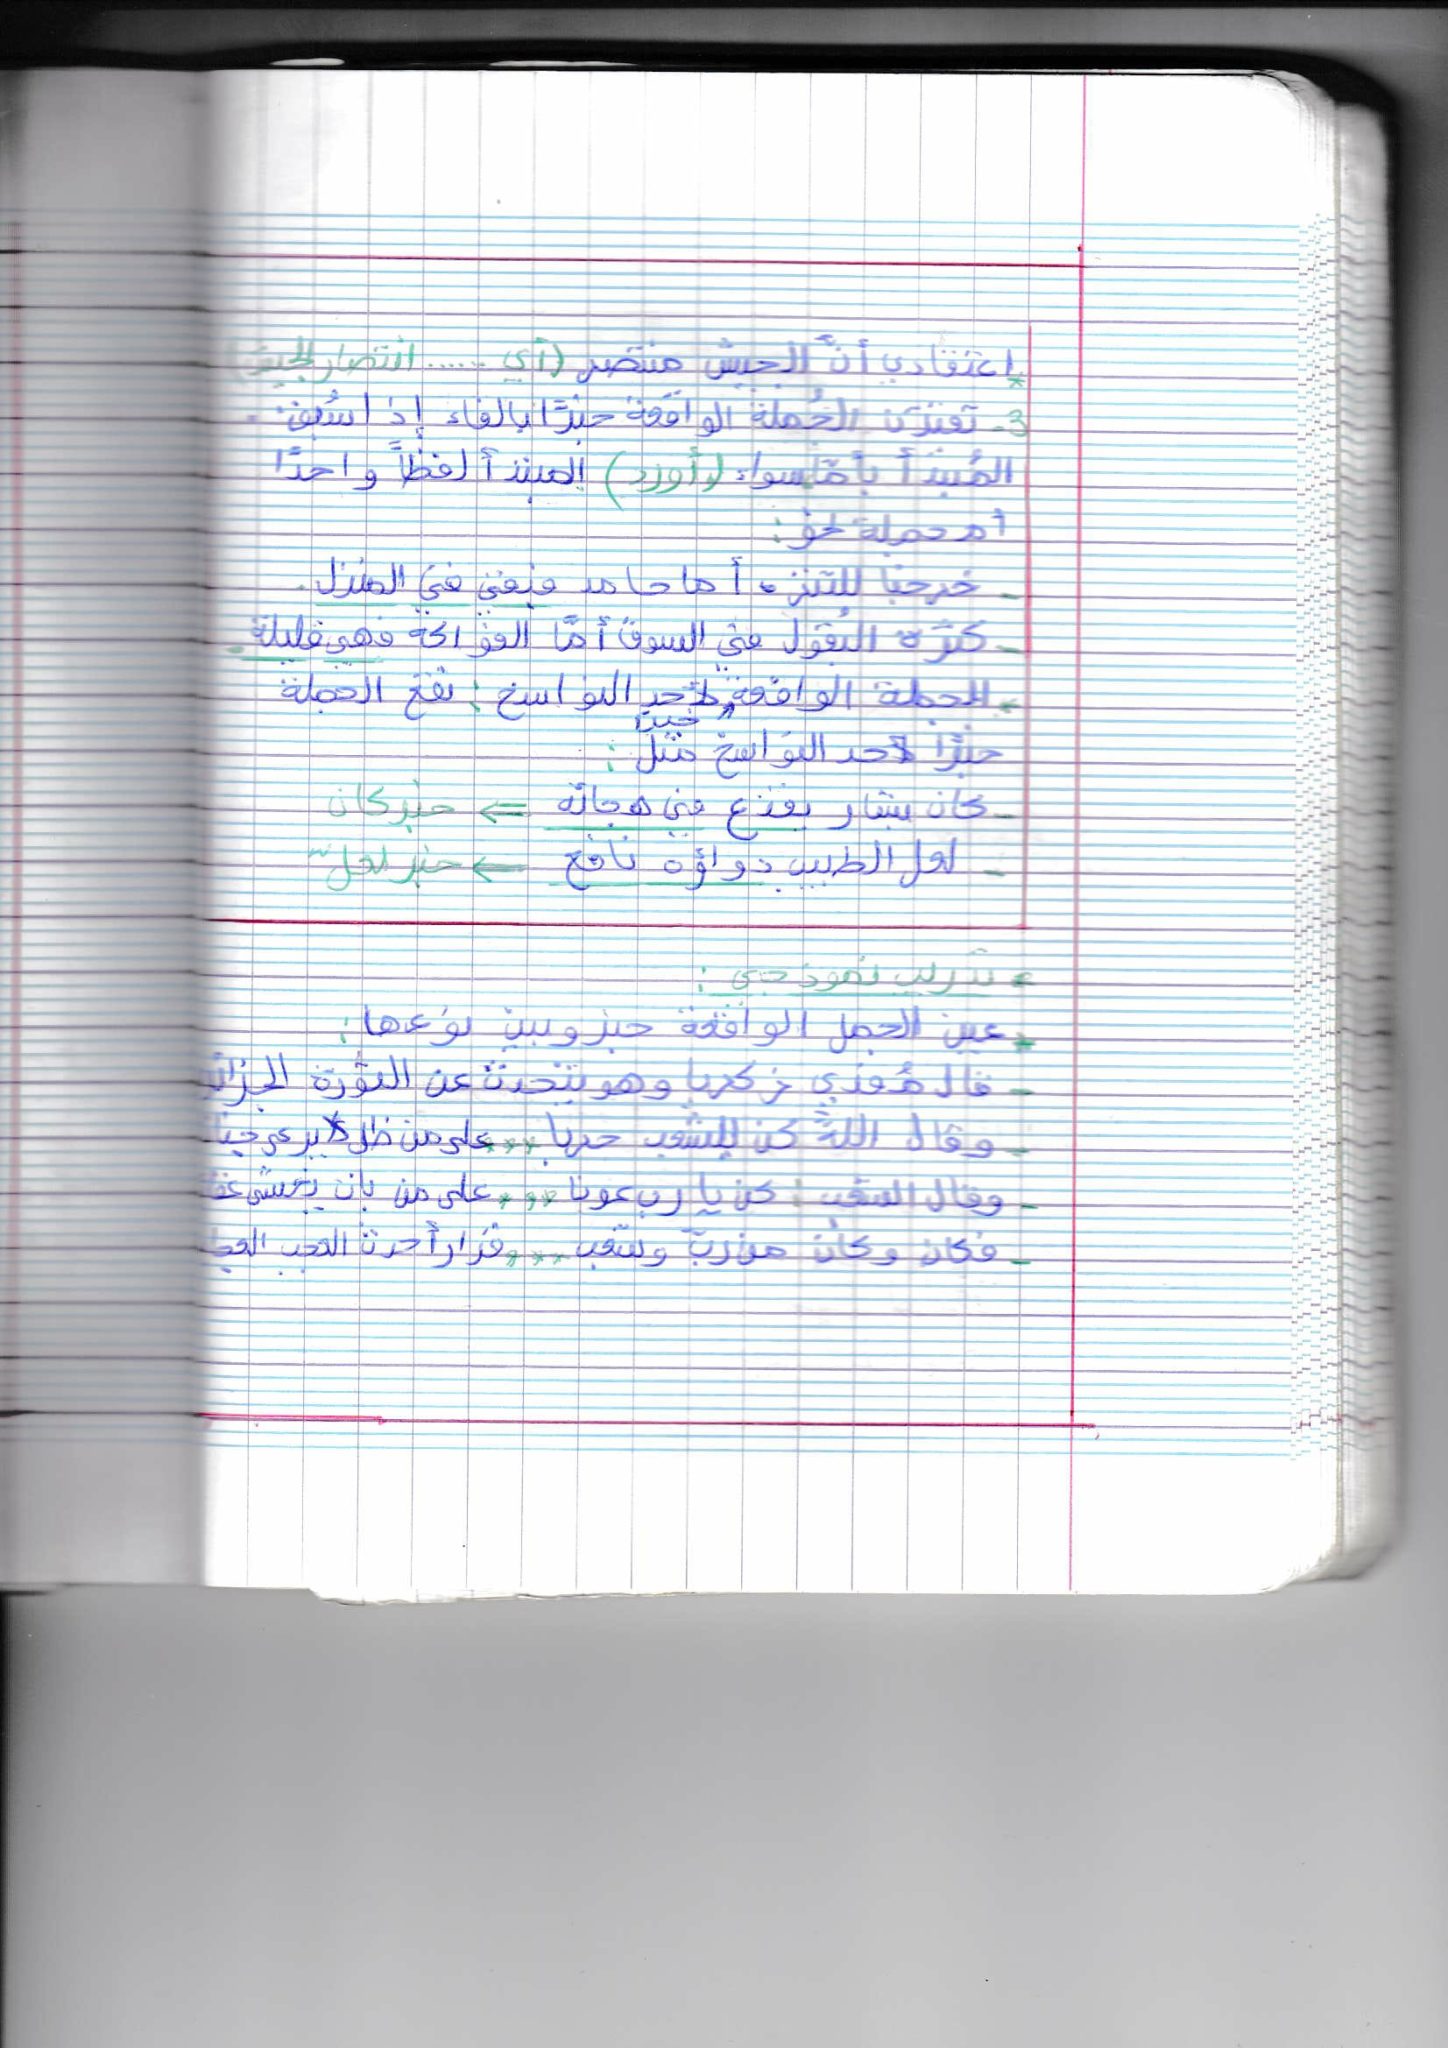 * اعتقادي أنَّ الجيش منتصر (أي ..... انتصار الجيش)
3- تقترن الجُملة الواقعة خبرًا بالفاء إذا سُبق
المُبتدأ بأمّا سواء (أورد) المبتدأ لفظاً واحدًا
أم جملة نحو :
- خرجنا للتنزه أما حامد فبقي في المنزل.
- كثرة البُقول في السوق أمَّا الفواكة فهي قليلة.
* الجملة الواقعة خبر لأحد النواسخ : تقع الجملة
خبرًا لأحد النواسخ مثل :
- كان بشار يقذع في هجائه ⇐ خبر كان
- لعل الطبيب دواؤه نافع ← خبر لعلّ
* تدريب نموذجي :
* عين الجمل الواقعة خبر وبين نوعها :
- قال مُفدي زكريا وهو يتحدث عن الثورة
- وقال اللهُ كن للشعب حربا *** على من ظل لا يرعى
- وقال الشعب : كن يا رب عونا *** على من بات يخشى
- فكان وكان من ربّ وشعب *** قرار أحدث العجب